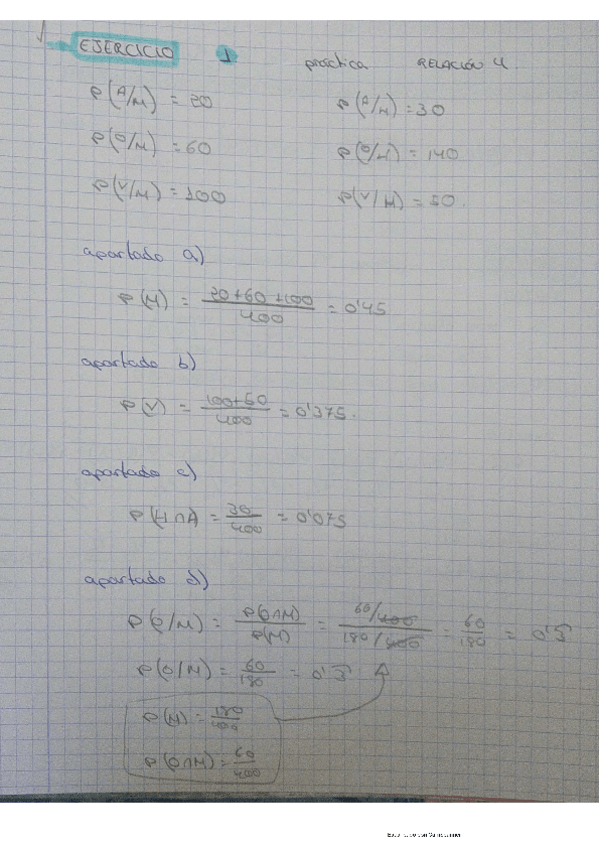 EJERCICIO 1 práctica RELACIÓN 4.
P(A/M) = 20 P(A/H) = 30
P(O/M) = 60 P(O/H) = 140
P(V/M) = 100 P(V/H) = 50.
apartado a)
P(M) = \frac{20+60+100}{400} = 0'45
apartado b)
P(V) = \frac{100+50}{400} = 0'375.
apartado c)
P(H∩A) = \frac{30}{400} = 0'075
apartado d)
P(O/M) = \frac{P(O∩M)}{P(M)} = \frac{60/400}{180/400} = \frac{60}{180} = 0'3̂
P(O/M) = \frac{60}{180} = 0'3̂
P(M) = \frac{180}{400}
P(O∩M) = \frac{60}{400}